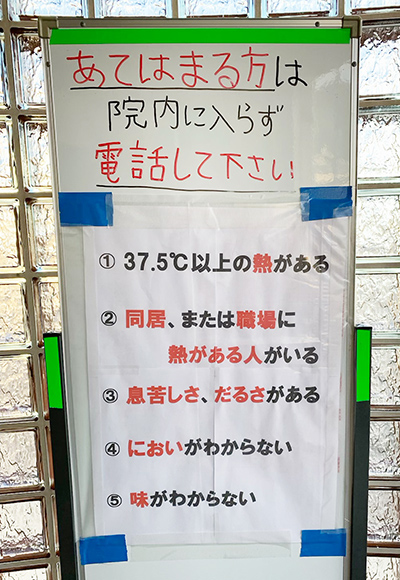 あてはまる方は
院内に入らず
電話して下さい
① 37.5℃以上の熱がある
② 同居、または職場に
熱がある人がいる
③ 息苦しさ、だるさがある
④ においがわからない
⑤ 味がわからない